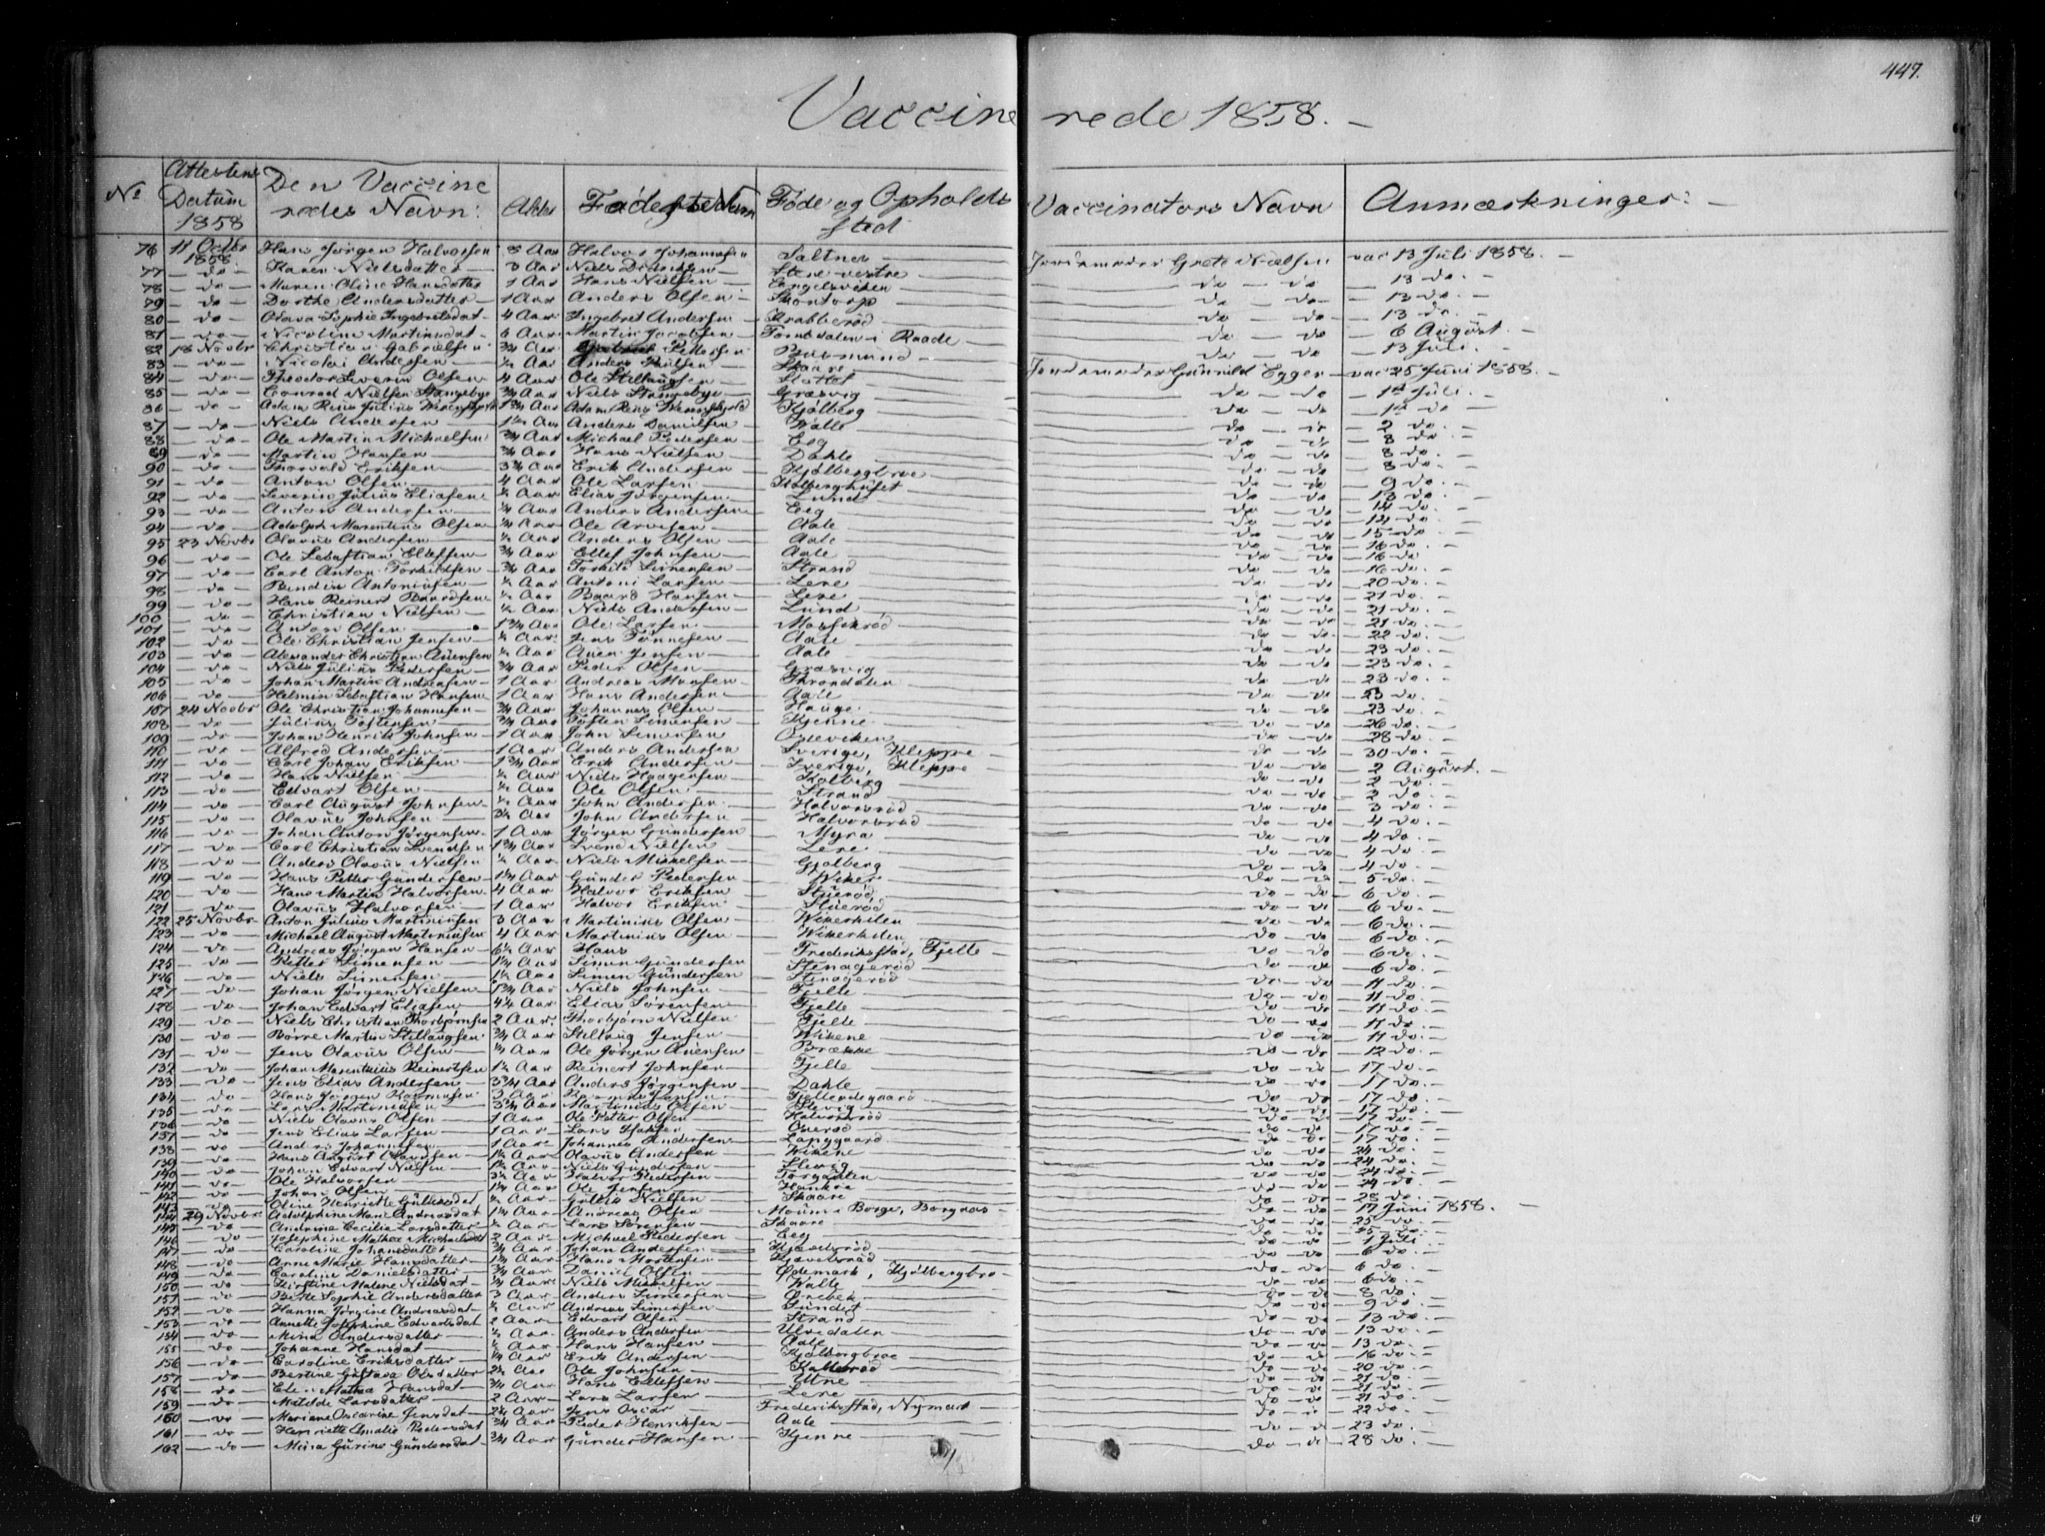 447.
Vaccinerede 1858. —
No Attestens Datum 1858 Den Vaccineredes Navn: Alder Faderens Navn Føde og Opholdssted Vaccinators Navn Anmærkninger: —
76 11 Octbr 1858 Hans Jørgen Halvorsen 8 Aar Halvor Johannesen Saltnes Jordemoder Grete Nielsen vac 13 Juli 1858. —
77 — do — Karen Nielsdatter 3 Aar Niels Stene vestre do — do — 13 do. —
78 — do — Maren Oline Hansdatter 1 Aar Hans Nielsen Engelsviken do — do — 13 do. —
79 — do — Dorthe Andersdatter 1 Aar Anders Olsen Skontorp do — do — 13 do. —
80 — do — Olava Sophie Ingebretsdat 4 Aar Ingebret Andersen Krabberød do — do — 6 August —
81 — do — Nicoline Martinsdat 6 Aar Martin Jacobsen i Raade do — do — 13 Juli. —
82 18 Novbr Christian Gabrielsen 3/4 Aar Pettersen Jordemoder Gunild Egger vac 25 Juni 1858. —
83 — do — Nicolai Andersen 1/2 Aar Anders Paulsen Skaare do — do — 1 Juli. —
84 — do — Theodor Severin Olsen 4 Aar Ole Stillaugsen Slottet do — do — 1 do —
85 — do — Conrad Nielsen Stangebye 3/4 Aar Niels Stangebye Græsvig do — do — 2 do. —
86 — do — Adam Rens Julius Adam Rens Kjølberg do — do — 8 do. —
87 — do — Niels Andersen 1 1/2 Aar Anders Danielsen Walle do — do — 8 do. —
88 — do — Ole Martin Michaelsen 3/4 Aar Michael Pedersen Eeg do — do — 8 do. —
89 — do — Martin Hansen 3/4 Aar Hans Nielsen Dahle do — do — 9 do. —
90 — do — Thorvald Eriksen 3 3/4 Aar Erik Andersen Kjølbergbroe do — do — 13 do. —
91 — do — Anton Olsen 4 Aar Ole Larsen Kølberghuset do — do — 14 do. —
92 — do — Severin Julius Eliasen 1/2 Aar Elias Jørgensen Lund do — do — 14 do. —
93 — do — Anton Andersen 3/4 Aar Anders Andersen Eeg do — do — 15 do. —
94 — do — Adolph Marentius Olsen 3/4 Aar Ole Arvesen Aale do — do — 16 do. —
95 23 Novbr Olavus Andersen 1/2 Aar Anders Olsen Aale do — do — 16 do. —
96 — do — Ole Sebastian Ellefsen 3/4 Aar Ellef Johnsen Aale do — do — 16 do. —
97 — do — Carl Anton Torkildsen 3/4 Aar Torkild Simensen Strand do — do — 20 do. —
98 — do — Bendix Antoniusen 1/2 Aar Antoni Larsen Lere do — do — 21 do. —
99 — do — Hans Reinert Baardsen 1/2 Aar Baard Hansen Lere do — do — 21 do. —
100 — do — Christian Nielsen 1/2 Aar Niels Andersen Lund do — do — 21 do. —
101 — do — Anton Olsen 1 3/4 Aar Ole Larsen Mosserød do — do — 22 do. —
102 — do — Ole Christian Jensen 1/2 Aar Jens Tønnesen Aale do — do — 23 do. —
103 — do — Alexander Christian Auensen 1/2 Aar Auen Jensen Aale do — do — 23 do. —
104 — do — Niels Julius Pedersen 3/4 Aar Peder Olsen Græsvig do — do — 23 do. —
105 — do — Johan Martin Andreasen 1 Aar Andreas Hansen Throndalen do — do — 23 do. —
106 — do — Helmin Sebastian Hansen 1 Aar Hans Andersen Aale do — do — 23 do. —
107 24 Novbr Ole Christian Johannesen 3/4 Aar Johannes Olsen Hauge do — do — 26 do. —
108 — do — Julius Tostensen 3/4 Aar Tosten Simensen Kjenne do — do — 28 do. —
109 — do — Johan Henrik Johnsen 1 Aar John Simensen Oreviken do — do — 30 do. —
110 — do — Alfred Andersen 1 Aar Anders Andersen Sverige, Kleppe do — do — 2 August. —
111 — do — Carl Johan Eriksen 1 3/4 Aar Erik Andersen Sverige, Kleppe do — do — 2 do. —
112 — do — Hans Nielsen 1/2 Aar Niels Haagensen Kølberg do — do — 3 do. —
113 — do — Edvart Olsen 1/2 Aar Ole Olsen Strand do — do — 3 do. —
114 — do — Carl August Johnsen 1/2 Aar John Andersen Halvorsrød do — do — 4 do. —
115 — do — Olavus Johnsen 3 1/2 Aar John Andersen Halvorsrød do — do — 4 do. —
116 — do — Johan Anton Jørgensen 1 Aar Jørgen Gundersen Myra do — do — 4 do. —
117 — do — Carl Christian Svendsen 1 3/4 Aar Svend Nielsen Lere do — do — 4 do. —
118 — do — Anders Olavus Nielsen 1/2 Aar Niels Mikkelsen Gjølberg do — do — 5 do. —
119 — do — Hans Petter Gundersen 1 1/4 Aar Gunder Pedersen Wiker do — do — 6 do. —
120 — do — Hans Martin Halvorsen 4 Aar Halvor Eriksen Stuerød do — do — 6 do. —
121 — do — Olavus Halvorsen 1 Aar Halvor Eriksen Stuerød do — do — 6 do. —
122 25 Novbr Anton Julius Martiniusen 3 Aar Martinius Olsen Wikerkilen do — do — 6 do. —
123 — do — Michael August Martiniusen 4 Aar Martinius Olsen Wikerkilen do — do — 6 do. —
124 — do — Andreas Jørgen Hansen 6 1/2 Aar Hans Frederiksstad, Fjelle do — do — 6 do. —
125 — do — Petter Simensen 1/2 Aar Simen Gundersen Stenagerød do — do — 11 do. —
126 — do — Niels Simensen 1 1/2 Aar Simen Gundersen Stenagerød do — do — 11 do. —
127 — do — Johan Jørgen Nielsen 1 3/4 Aar Niels Johnsen Fjelle do — do — 11 do. —
128 — do — Johan Edvart Eliasen 4 1/2 Aar Elias Sørensen Fjelle do — do — 11 do. —
129 — do — Niels Christian Thorbjørnsen 2 Aar Thorbjørn Nielsen Fjelle do — do — 11 do. —
130 — do — Børre Martin Stillaugsen 3/4 Aar Stillaug Jensen Wikene do — do — 12 do. —
131 — do — Jens Olavus Olsen 3/4 Aar Ole Jørgen Auensen Brække do — do — 17 do. —
132 — do — Johan Marentinius Reinertsen 1 1/2 Aar Reinert Johnsen Fjelle do — do — 17 do. —
133 — do — Jens Elias Andersen 3 3/4 Aar Anders Jørgensen Dahle do — do — 17 do. —
134 — do — Hans Jørgen 3 Aar Fjelleødegaard do — do — 17 do. —
135 — do — Lars Martiniusen 3 3/4 Aar Martinius Olsen Slevig do — do — 17 do. —
136 — do — Niels Olavus Olsen 1 Aar Ole Petter Olsen Halvorsrød do — do — 17 do. —
137 — do — Jens Elias Larsen 1 Aar Lars Oserød do — do — 17 do. —
138 — do — Anders Johannesen 1 Aar Johannes Andersen Langgaard do — do — 24 do. —
139 — do — Hans August Olavusen 1 1/2 Aar Olavus Andersen Wikene do — do — 24 do. —
140 — do — Johan Edvart Nielsen 1 1/2 Aar Niels Gundersen Slevig do — do — 24 do. —
141 — do — Ole Halvorsen 3 1/2 Aar Halvor Pedersen do — do — 24 do. —
142 — do — Johan Olsen 1 1/2 Aar Ole Jensen Hankøe do — do — 28 do. —
143 — do — Oline Henriette Gulliksdat 1/2 Aar Nielsen Skaare do — do — 17 Juni 1858. —
144 29 Novbr Adolphine Marie Andreasdat 1 1/4 Aar Andreas Olsen Borge, do — do — 25 do. —
145 — do — Andrine Cecilia Larsdatter 1/2 Aar Lars Sørensen Skaare do — do — 25 do. —
146 — do — Josephine Mathea Michaelsdat 2 Aar Michael Pedersen Eeg do — do — 1 Juli —
147 — do — Caroline Johansdatter 3/4 Aar Johan Andersen do — do — 6 do. —
148 — do — Anne Marie Hansdatter 1 3/4 Aar Hans Mortensen do — do — 6 do. —
149 — do — Caroline Danielsdatter 3/4 Aar Daniel Olsen Ødemark, Kjølbergbro do — do — 6 do. —
150 — do — Kirstine Malene Nielsdat 3/4 Aar Niels Mikkelsen Walle do — do — 8 do. —
151 — do — Berte Sophie Andersdatter 3 Aar Anders Simensen Ørebek do — do — 9 do. —
152 — do — Hanna Jørgine Andreasdat 1/2 Aar Andreas Simensen Sundet do — do — 13 do. —
153 — do — Annette Josephine Edvardsdat 2 Aar Edvart Olsen Strand do — do — 13 do. —
154 — do — Mina Andersdatter 1/2 Aar Anders Andersen Ulvedalen do — do — 13 do. —
155 — do — Johanne Hansdat 1/2 Aar Hans Hansen Aale do — do — 16 do. —
156 — do — Caroline Eriksdatter 3/4 Aar Erik Andersen Kjølbergbroe do — do — 20 do. —
157 — do — Bertine Gustava Olsdatter 2 1/2 Aar Ole Johnsen Kallerød do — do — 21 do. —
158 — do — Mathea Hansdat 3/4 Aar Hans Ellefsen Ytne do — do — 21 do. —
159 — do — Matilde Larsdatter 2 Aar Lars Larsen Lere do — do — 21 do. —
160 — do — Mariane Oscarine Jensdat 2 1/2 Aar Jens Oscar Frederiksstad, Nymark do — do — 22 do. —
161 — do — Henriette Amalie Pedersdat 3/4 Aar Peder Henriksen Aale do — do — 23 do. —
162 — do — Mina Gurine Gundersdat 3/4 Aar Gunder Hansen Kjenne do — do — 28 do. —